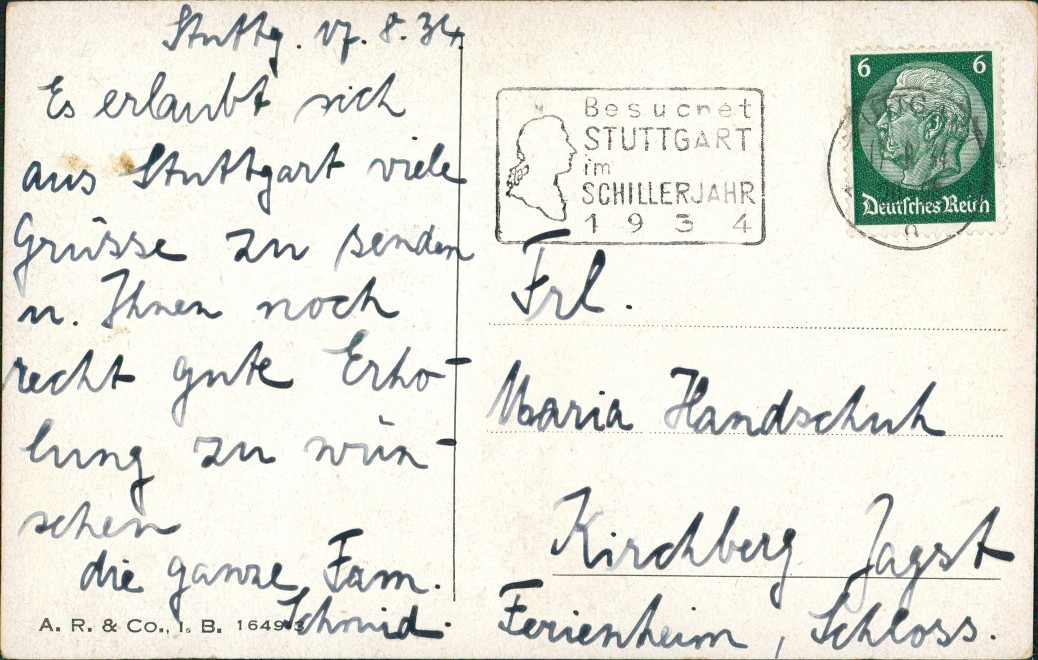 Stuttg. 17. 8. 34.
Es erlaubt sich
aus Stuttgart viele
Grüsse zu senden
u. Ihnen noch
recht gute Erho-
lung zu wün-
schen
die ganze Fam.
Schmid.
A. R. & Co., I. B. 1649
Besuchet
STUTTGART
im
SCHILLERJAHR
1934
6 6
Deutsches Reich
Frl.
Maria Handschuh
Kirchberg Jagst
Ferienheim, Schloss.